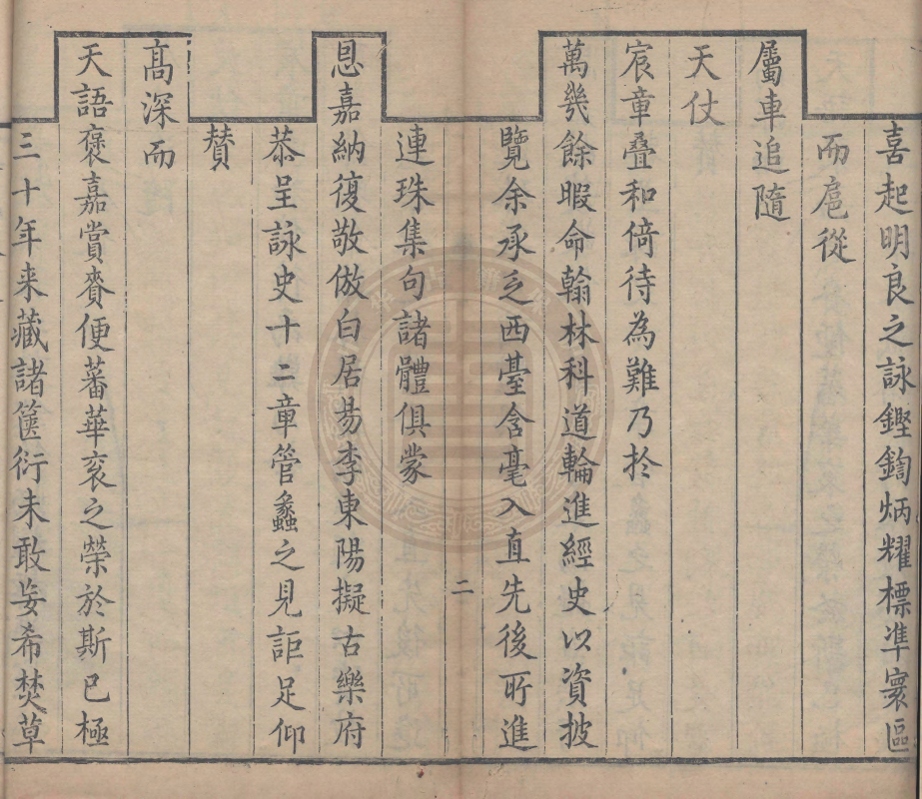 喜起明良之詠鏗鍧炳耀標準寰區
而扈從
屬車追隨
天仗
宸章叠和倚待為難乃扵
萬幾餘暇命翰林科道輪進經史以資披
覽余承乏西臺含毫入直先後所進
二
連珠集句諸體俱蒙
恩嘉納復敬倣白居昜李東陽擬古樂府
恭呈詠史十二章管蠡之見詎足仰
賛
髙深而
天語襃嘉賞賚便蕃華衮之榮於斯已極
三十年来藏諸篋衍未敢妄希焚草